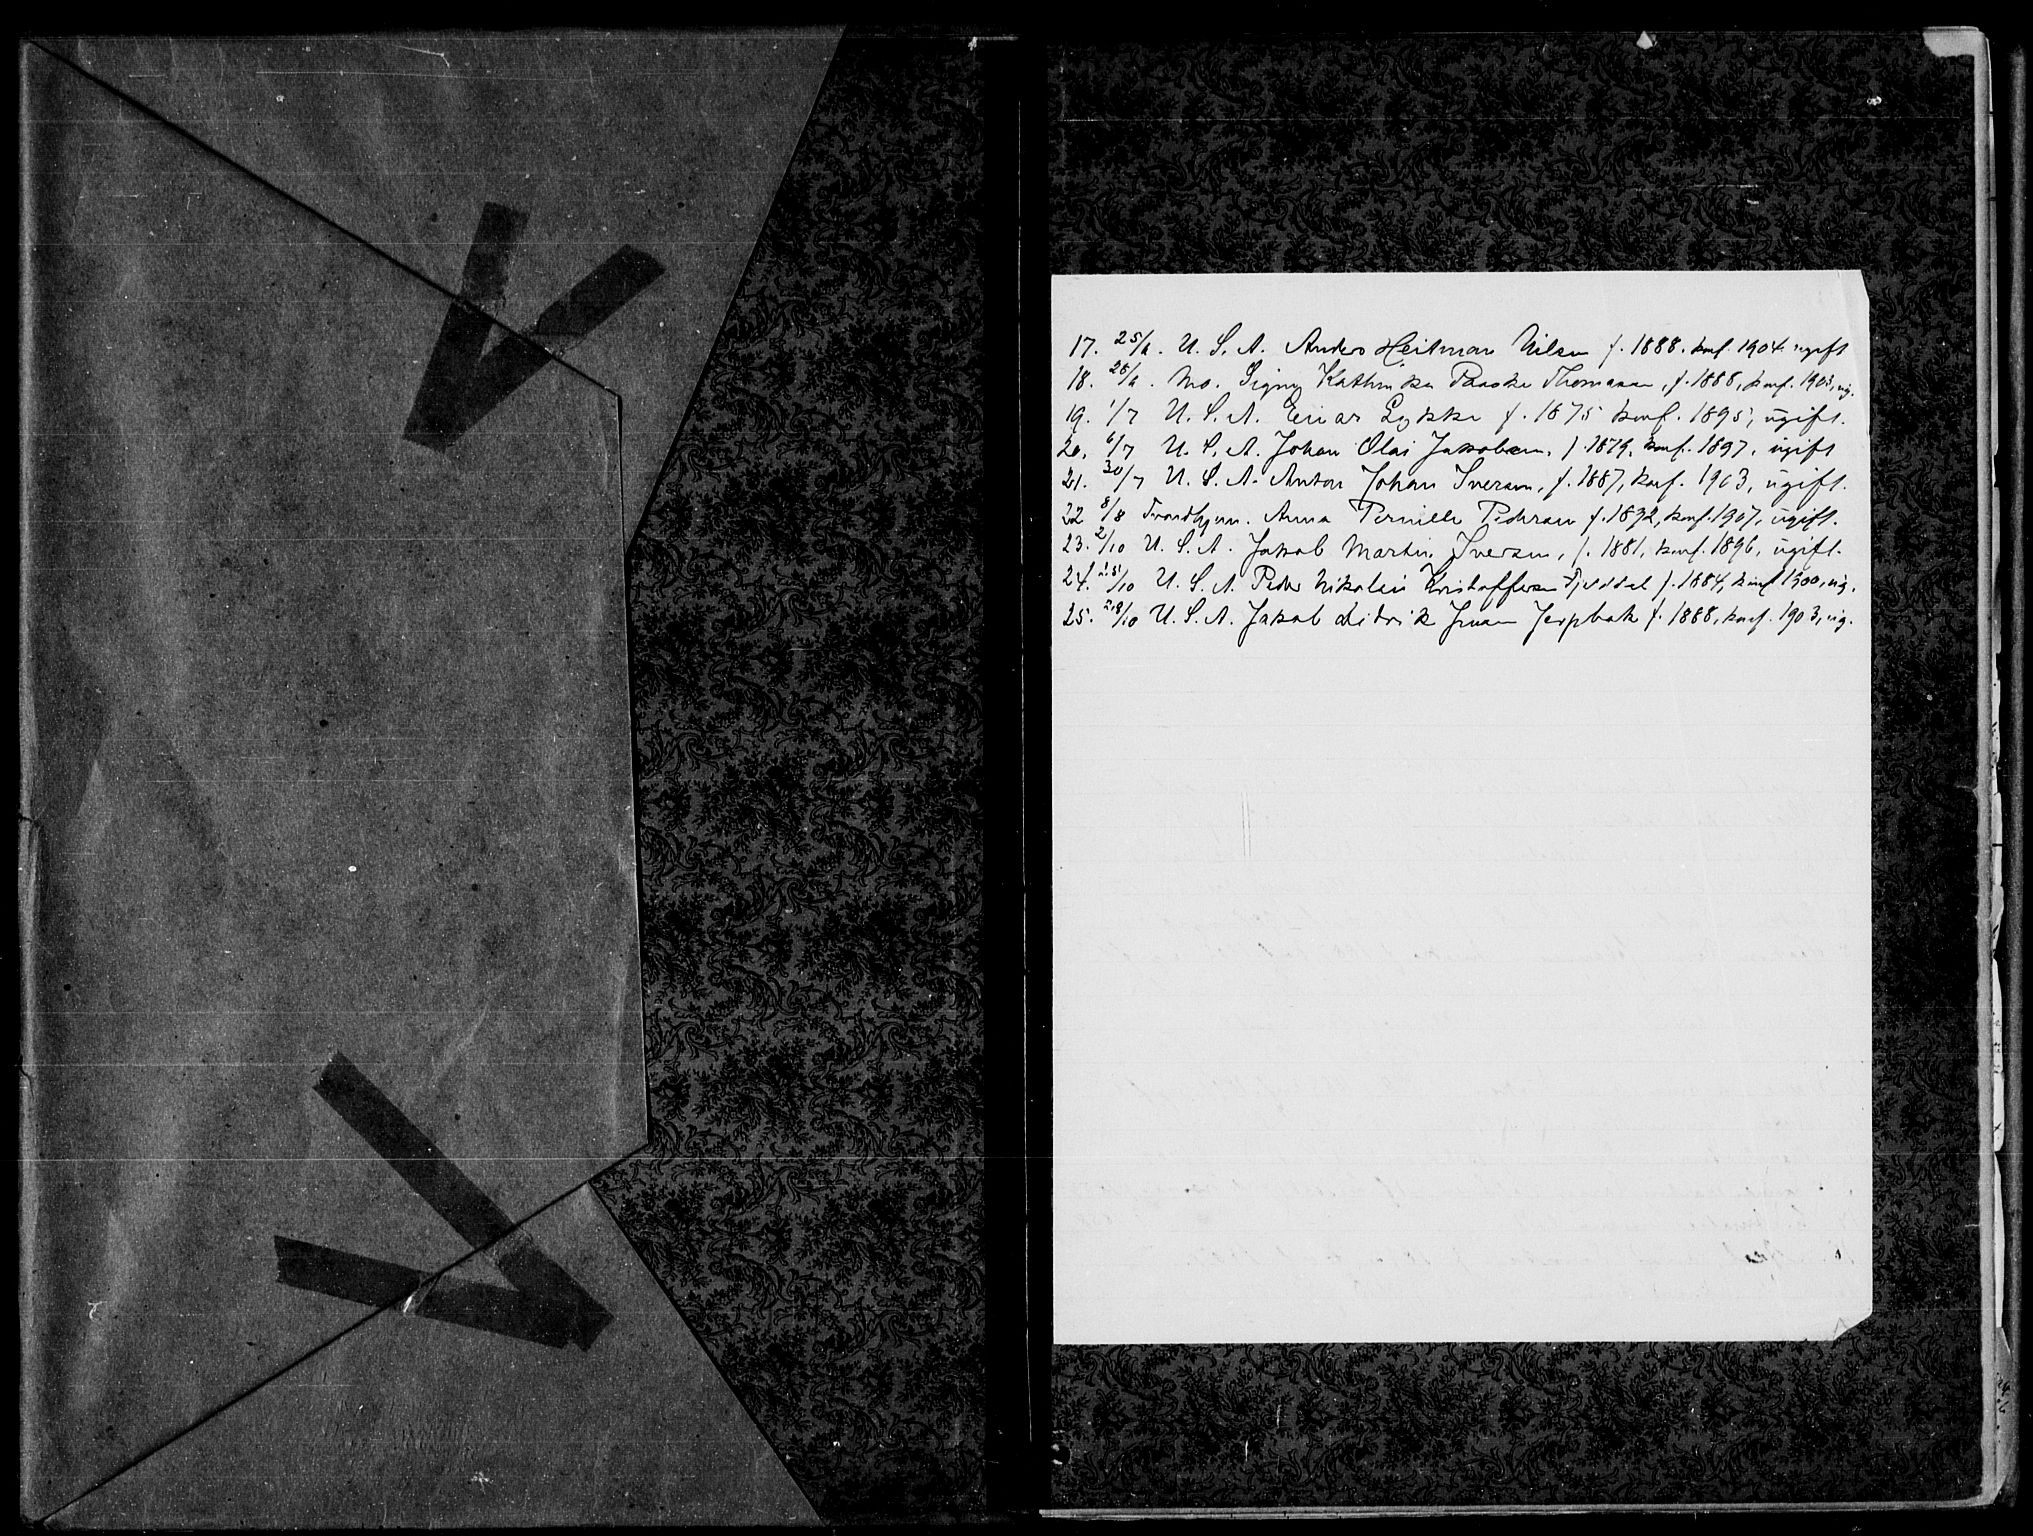 17. 25/6. U. S. A. Anders Heitman Nilsen f. 1888. konf. 1904. ugift
18. 26/6. Mo. Signy Kathinka Paaske Thomasen, f. 1888, konf. 1903, ug.
19. 1/7 U. S. A. Einar Lykke f. 1875 konf. 1895, ugift.
20. 6/7 U. S. A. Johan Olai Jakobsen. f. 1879, konf. 1897, ugift
21. 30/7 U. S. A. Anton Johan Iversen, f. 1887, konf. 1903, ugift.
22 8/8 Trondhjem. Anna Pernille Pedersen f. 1892, konf. 1907, ugift.
23. 2/10 U. S. A. Jakob Martin Iversen, f. 1881, konf. 1896, ugift.
24. 15/10 U. S. A. Peder Nikolai Kristoffersen Fjelddal f. 1884, konf 1900, ug.
25. 28/10 U. S. A. Jakob Didrik Jensen Jerpbak f. 1888, konf. 1903, ug.